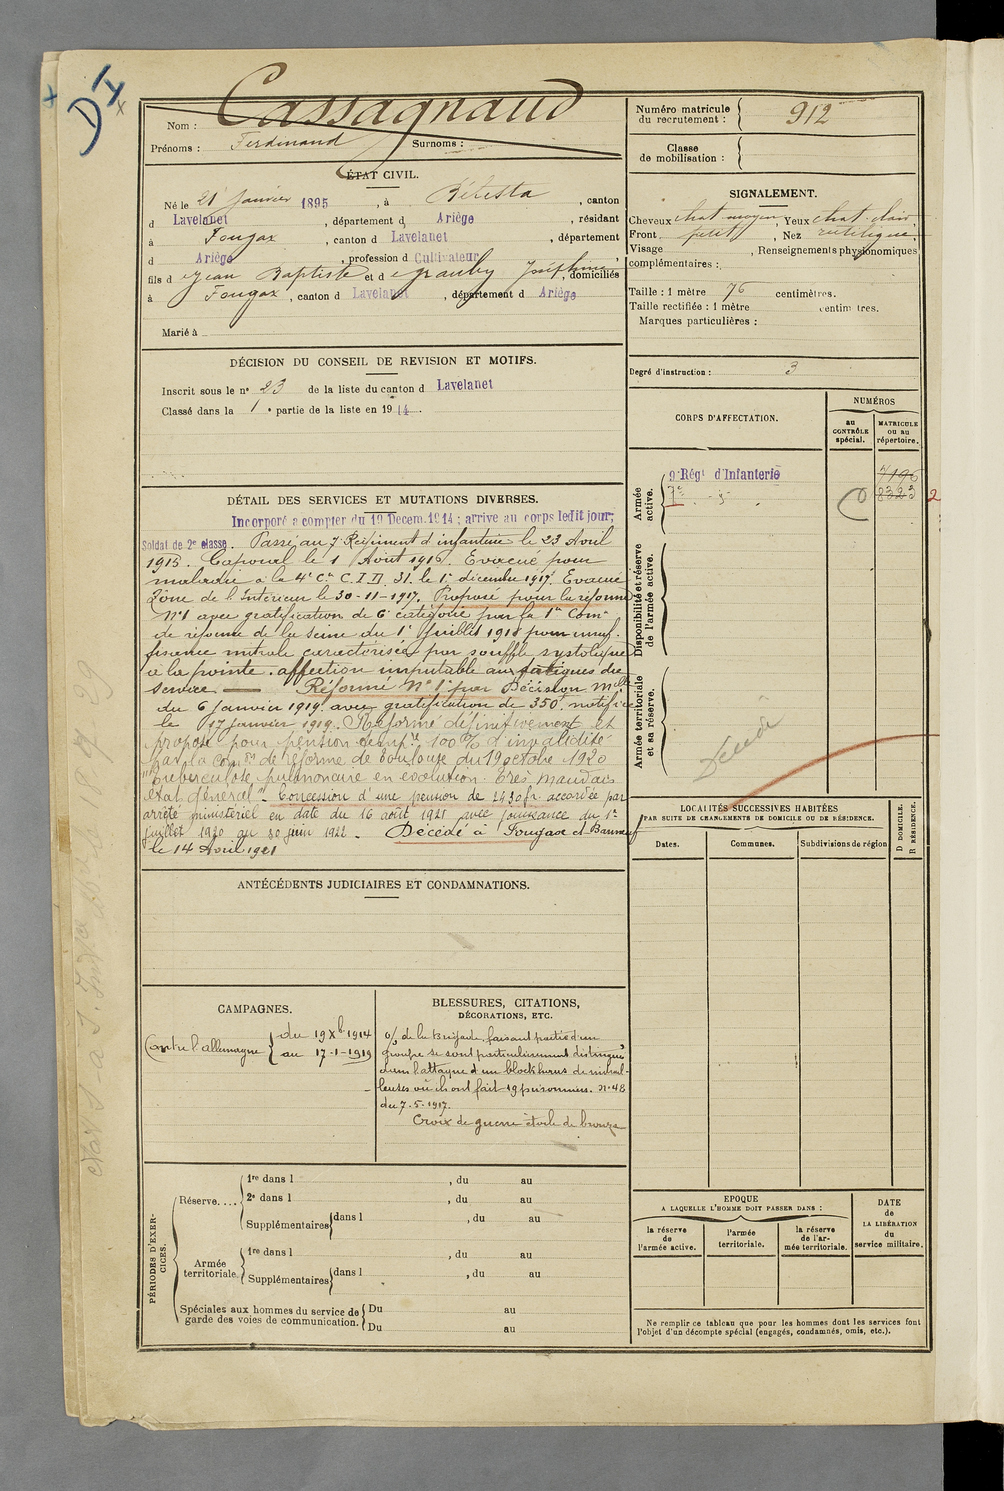 D I
Cassagnaud
Nom :
Prénoms : Ferdinand Surnoms :
Numéro matricule
du recrutement : 912
Classe
de mobilisation :
ÉTAT CIVIL.
Né le 21 Janvier 1895, à Bélesta, canton
d Lavelanet, département d Ariège, résidant
à Fougax, canton d Lavelanet, département
d Ariège, profession d Cultivateur
fils d e Jean Baptiste et d e Joséphine, domiciliés
à Fougax, canton d Lavelanet, département d Ariège
Marié à
SIGNALEMENT.
Cheveux chat moyen, Yeux chat. clair
Front petit, Nez rectiligne
Visage , Renseignements physionomiques
complémentaires :
Taille : 1 mètre 76 centimètres.
Taille rectifiée : 1 mètre centimètres.
Marques particulières :
Degré d'instruction : 3
DÉCISION DU CONSEIL DE REVISION ET MOTIFS.
Inscrit sous le nº 23 de la liste du canton d Lavelanet
Classé dans la 1e partie de la liste en 1914.
DÉTAIL DES SERVICES ET MUTATIONS DIVERSES.
Incorporé à compter du 19 Décem. 1914 ; arrive au corps ledit jour;
Soldat de 2e classe. Passé au 7e Régiment d'infanterie le 23 Avril
1915. Caporal le 1 Août 1916. Evacué pour
maladie à la 4e Cie C.I.D. 31. le 1e décembre 1917. Evacué
Zône de l'Intérieur le 30-11-1917. Proposé pour la réforme
Nº1 avec gratification de 6e catégorie par la 1re Com on
de réforme de la Seine du 1e Juillet 1918 pour insuf-
fisance mitrale caractérisée par souffle systolique
à la pointe. affection imputable aux fatigues du
service — Réformé Nº 1 par Décision Mlle
du 6 Janvier 1919. avec gratification de 350f. notifiée
le 17 Janvier 1919. Réformé définitivement et
proposé pour pension 100 % d'invalidité
par la Comon de réforme de Toulouse du 19 octobre 1920
"Tuberculose pulmonaire en évolution. très mauvais
état général". Concession d'une pension de 2430 fr. accordée par
arrêté ministériel en date du 16 août 1921 avec jouissance du 1er
Juillet 1920 au 30 juin 1922. Décédé à Fougax et Barrineuf
le 14 Avril 1921
CORPS D'AFFECTATION.
NUMÉROS
au
CONTRÔLE
spécial.
MATRICULE
OU AU
répertoire.
Armée
active.
9e Régt d'Infanterie 7196
7e - d° - 8323 2
Disponibilité et réserve
de l'armée active.
Armée territoriale
et sa réserve.
Décédé
LOCALITÉS SUCCESSIVES HABITÉES
PAR SUITE DE CHANGEMENTS DE DOMICILE OU DE RÉSIDENCE.
D DOMICILE.
R RÉSIDENCE.
Dates. Communes. Subdivisions de région
ANTÉCÉDENTS JUDICIAIRES ET CONDAMNATIONS.
CAMPAGNES.
Contre l'Allemagne
du 19 Xbre 1914
au 17-1-1919
BLESSURES, CITATIONS,
DÉCORATIONS, ETC.
o/ de la Brigade, faisant partie d'un
groupe se sont particulièrement distingués
dans l'attaque d'un blockhaus de mitrail-
leuses où ils ont fait 19 prisonniers. n. 48
du 7-5-1917.
Croix de guerre étoile de bronze
PÉRIODES D'EXER-
CICES.
Réserve....
1re dans l , du au
2e dans l , du au
Supplémentaires dans l , du au
Armée
territoriale
1re dans l , du au
Supplémentaires dans l , du au
Spéciales aux hommes du service de
garde des voies de communication.
Du au
Du au
EPOQUE
A LAQUELLE L'HOMME DOIT PASSER DANS :
la réserve
de
l'armée active.
l'armée
territoriale.
la réserve
de l'ar-
mée territoriale.
DATE
de
LA LIBÉRATION
du
service militaire.
Ne remplir ce tableau que pour les hommes dont les services font
l'objet d'un décompte spécial (engagés, condamnés, omis, etc.).